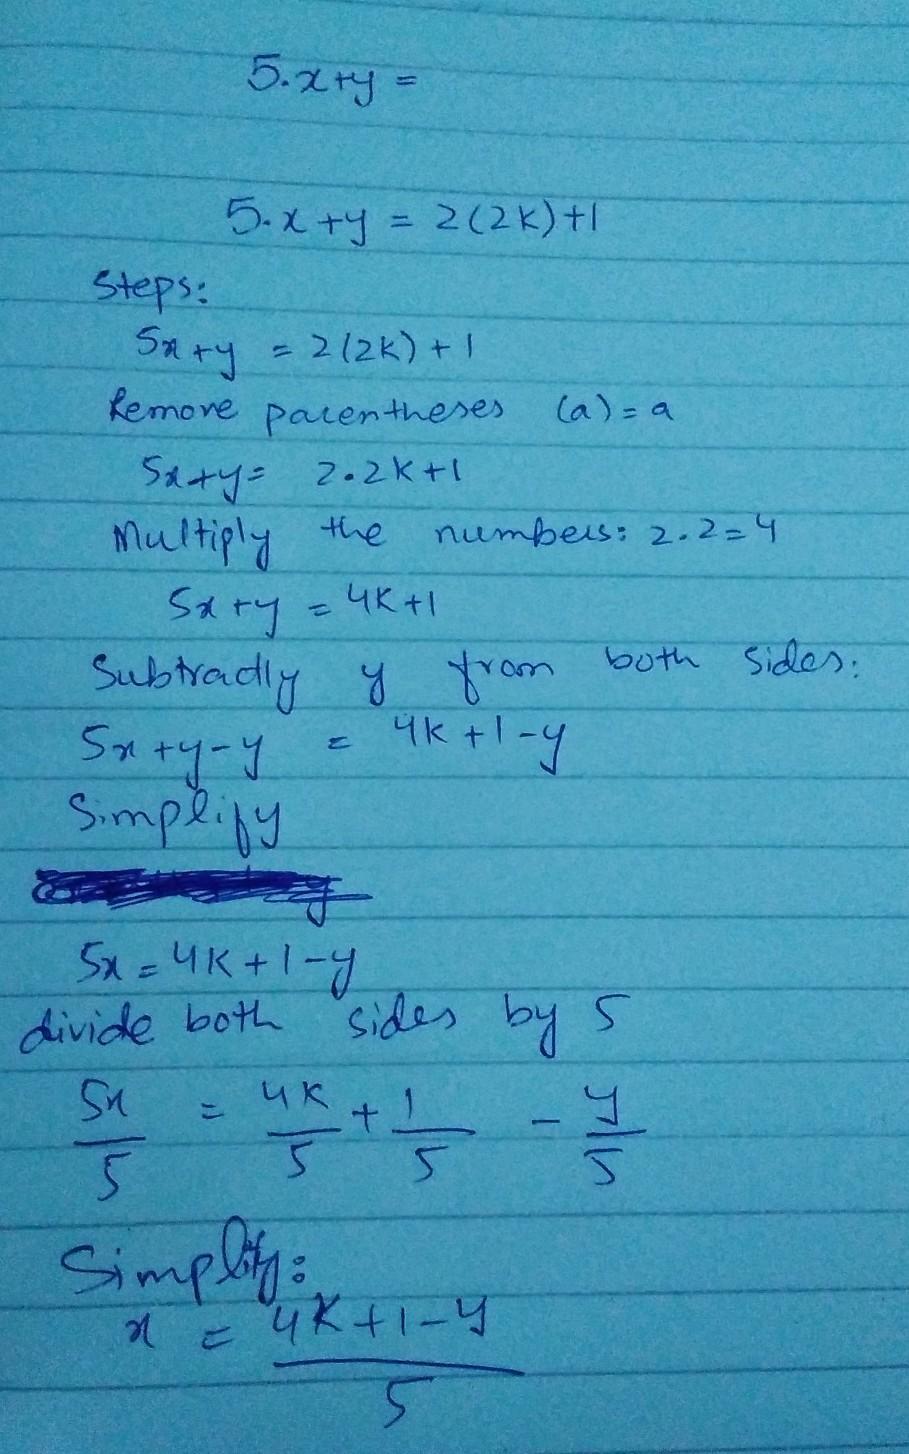 5.x+y =
5.x+y = 2(2K)+1
Steps:
5x+y = 2(2K)+1
Remove parentheses (a)=a
5x+y= 2.2K+1
Multiply the numbers: 2.2=4
5x+y = 4K+1
Subtradly y from both sides:
5x+y-y = 4K+1-y
Simplify
5x=4K+1-y
divide both sides by 5
5x/5 = 4K/5 + 1/5 - y/5
Simplify:
x = 4K+1-y/5